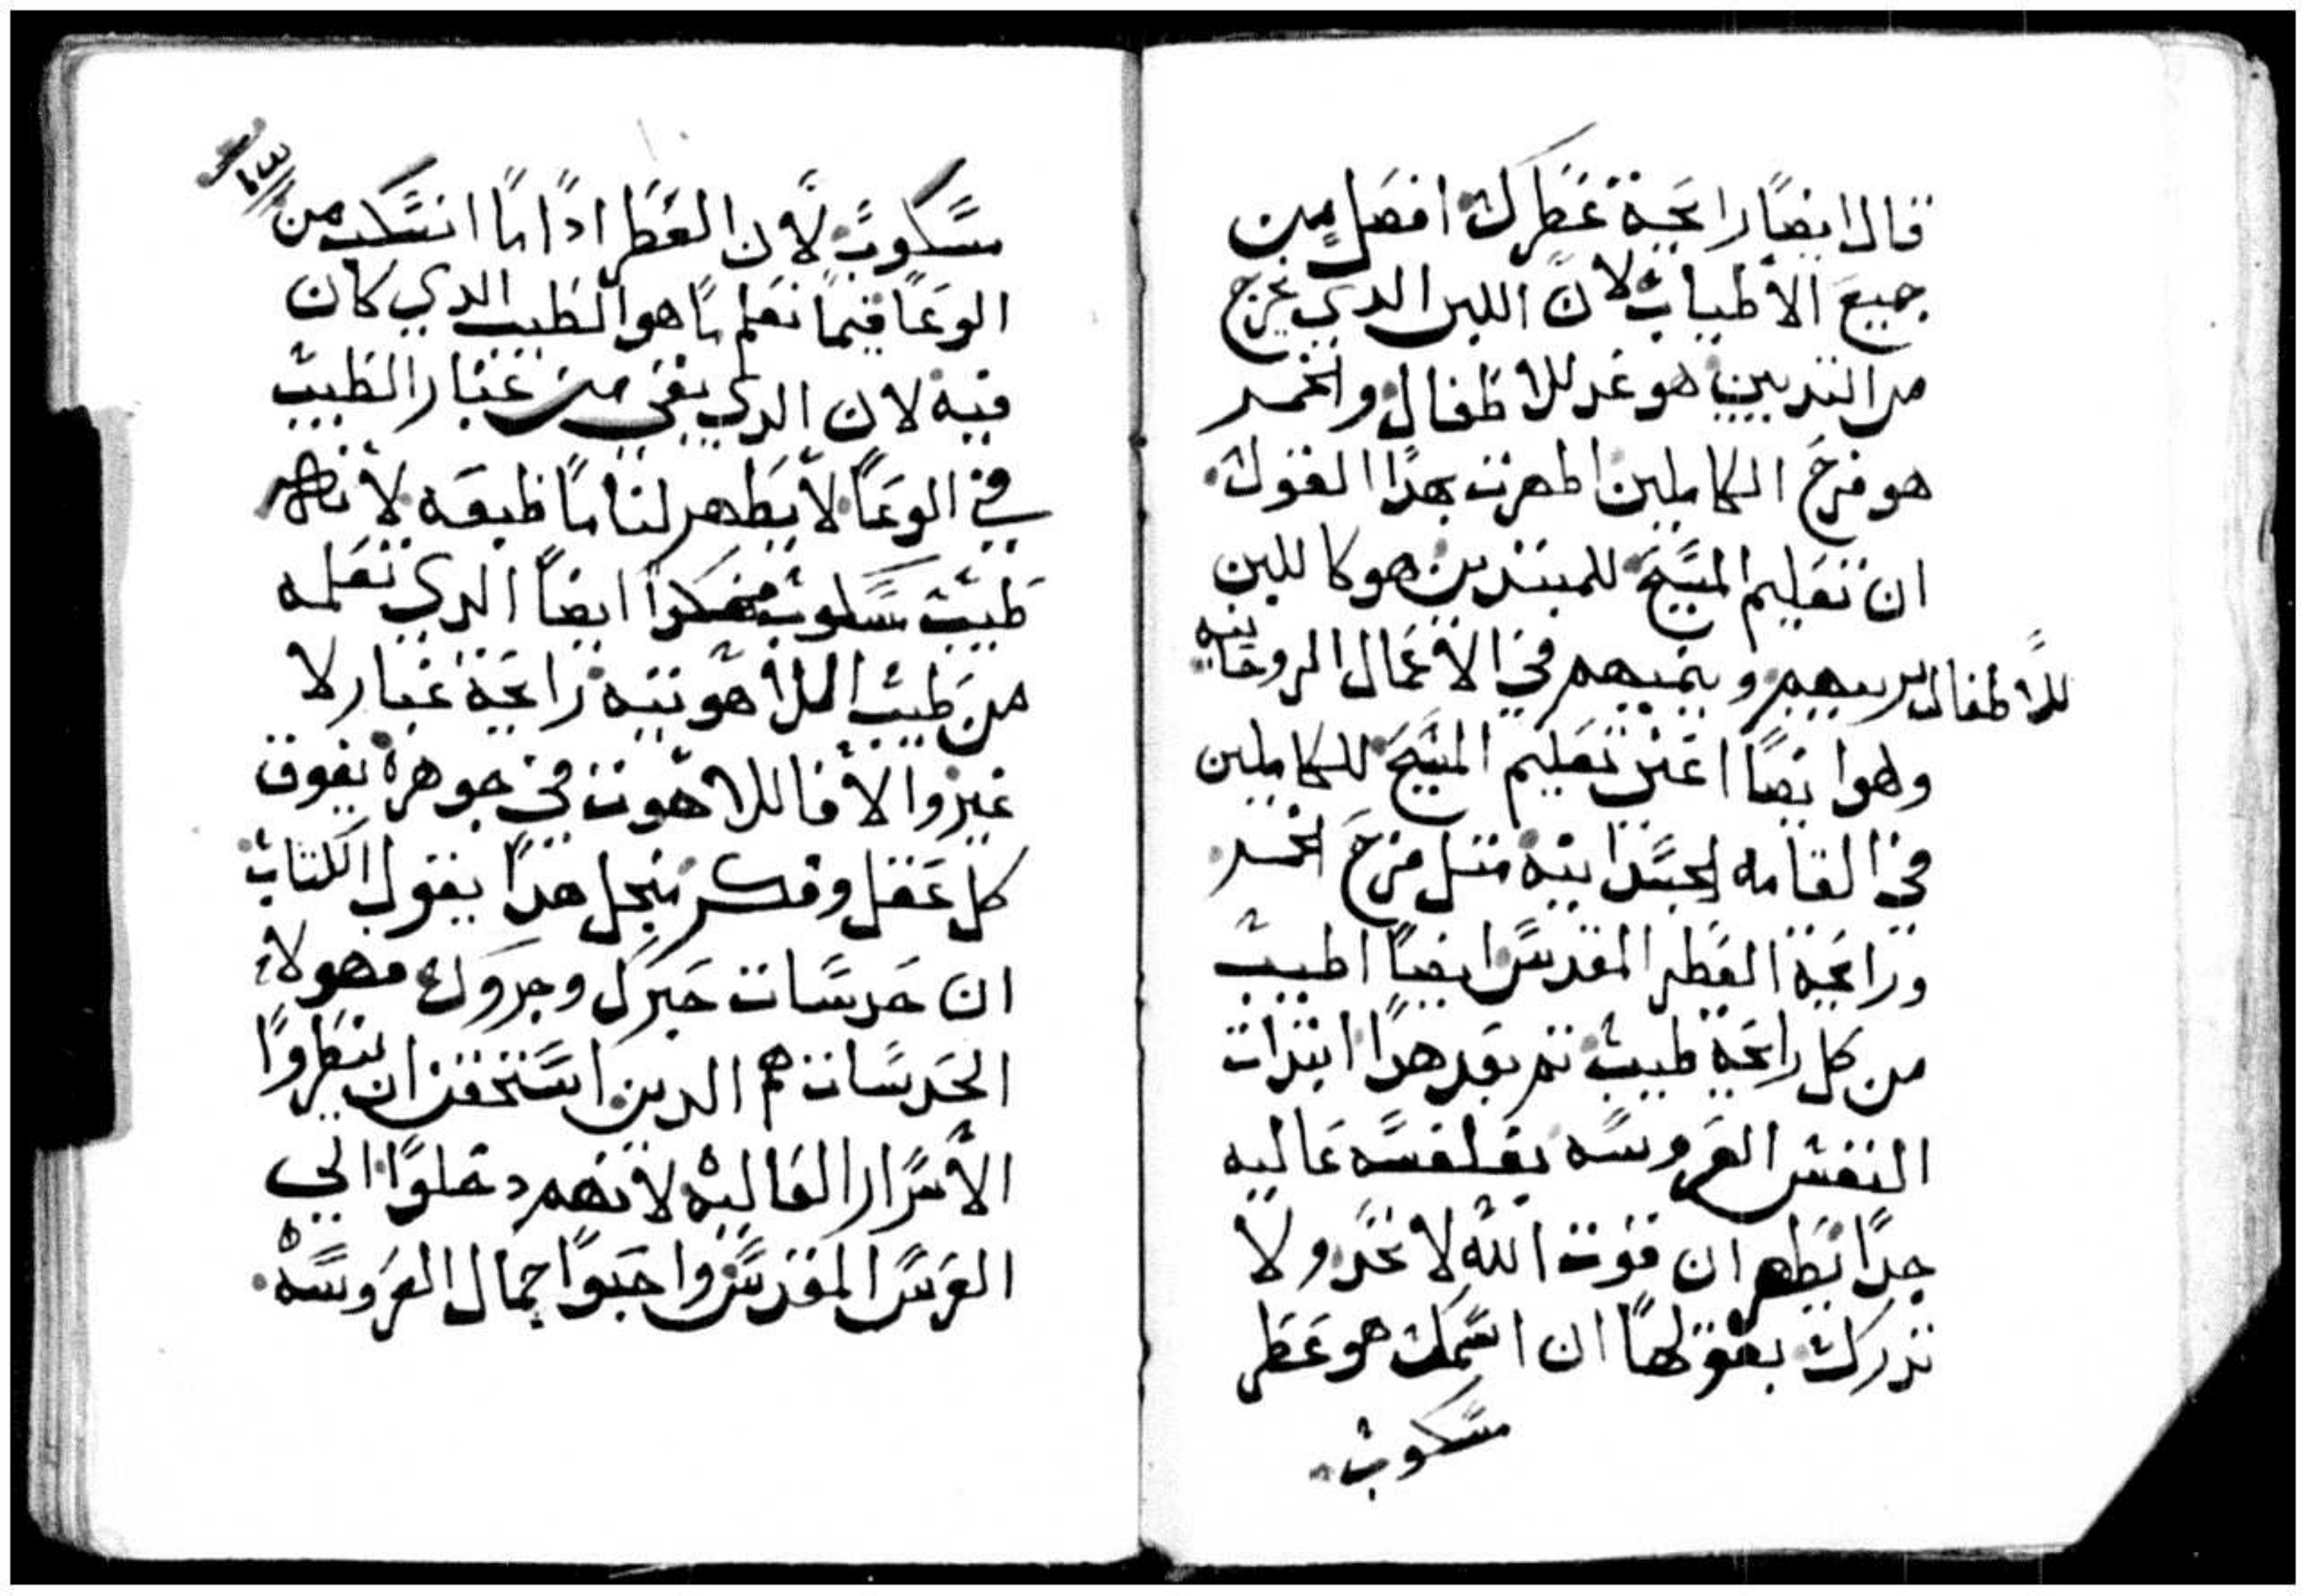 قال ايضًا رايحة عطرك افضل من
جميع الأطياب لان اللبن الدي يخرج
من الثديين هو غد للاطفال والخمر
هو فرح الكاملين اظهرت بهدا القول
ان تعليم المسيح للمبتديين هو كاللبن
للأطفال يربيهم وينميهم في الأعمال الروحانيه
وهو ايضًا اعني تعليم المسيح للكاملين
في القامه الجسدانية مثل فرح الخمر
ورايحة العطر المقدس ايضًا اطيب
من كل رايحة طيب ثم بعد هدا ابتدات
النفس العروسه بفلفسه عاليه
جدًا تظهر ان قوت الله لا تحد ولا
تدرك بقولها ان اسمك هو عطر
مسكوب
٢٣
مسكوب لأن العطر ادا ما انسكب من
الوعا فيما نعلم ما هو الطيب الدي كان
فيه لان الدي بقي من غبار الطيب
في الوعا لا يظهر لنا ما طبعه لأنه
طيب مسكوب فهكدا ايضًا الدي نعلمه
من طيب اللاهوتيه رايحة غبار لا
غير والا فاللاهوت في جوهره يفوق
كل عقل وفكر منجل هدا يقول الكتاب
ان حدسات حبرك وجدوك فهولاء
الحدسات هم الدين استحقن ان ينظروا
الأسرار العاليه لأنهم دخلوا الي
العرس المقدس واحبوا جمال العروسه